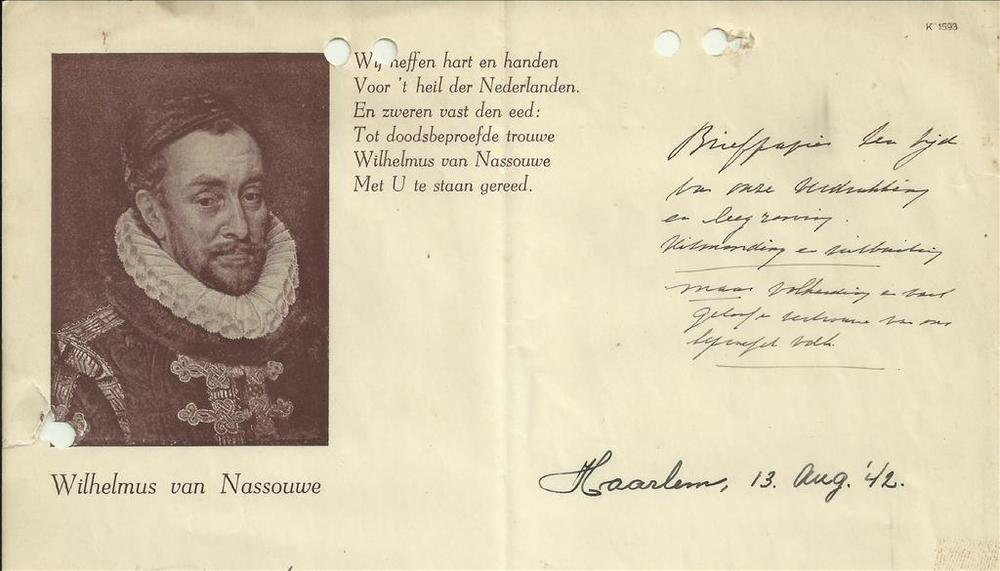 K 1593
Wij heffen hart en handen
Voor 't heil der Nederlanden.
En zweren vast den eed:
Tot doodsbeproefde trouwe
Wilhelmus van Nassouwe
Met U te staan gereed.
Briefpapier ten tijde
van onze verdrukking
en leegrooving.
Uitmoording en uitbuiting
maar volharding en vast
geloof en vertrouwen van ons
beproefd volk.
Wilhelmus van Nassouwe
Haarlem, 13. Aug. '42.